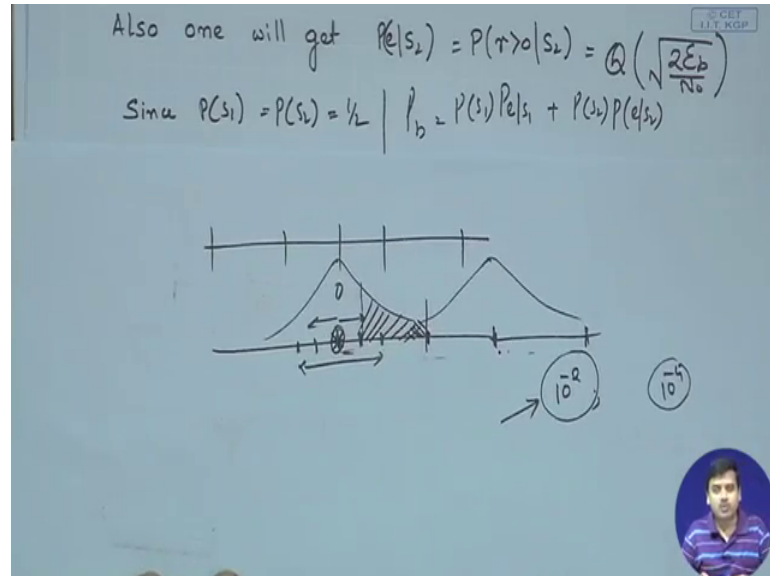 © CET
I.I.T. KGP
Also one will get P(e|S₂) = P(r>0|S₂) = Q(√(2Ɛb/N₀))
Since P(S₁) = P(S₂) = 1/2 | Pb = P(S₁) Pe|S₁ + P(S₂) P(e|S₂)
0
10⁻²